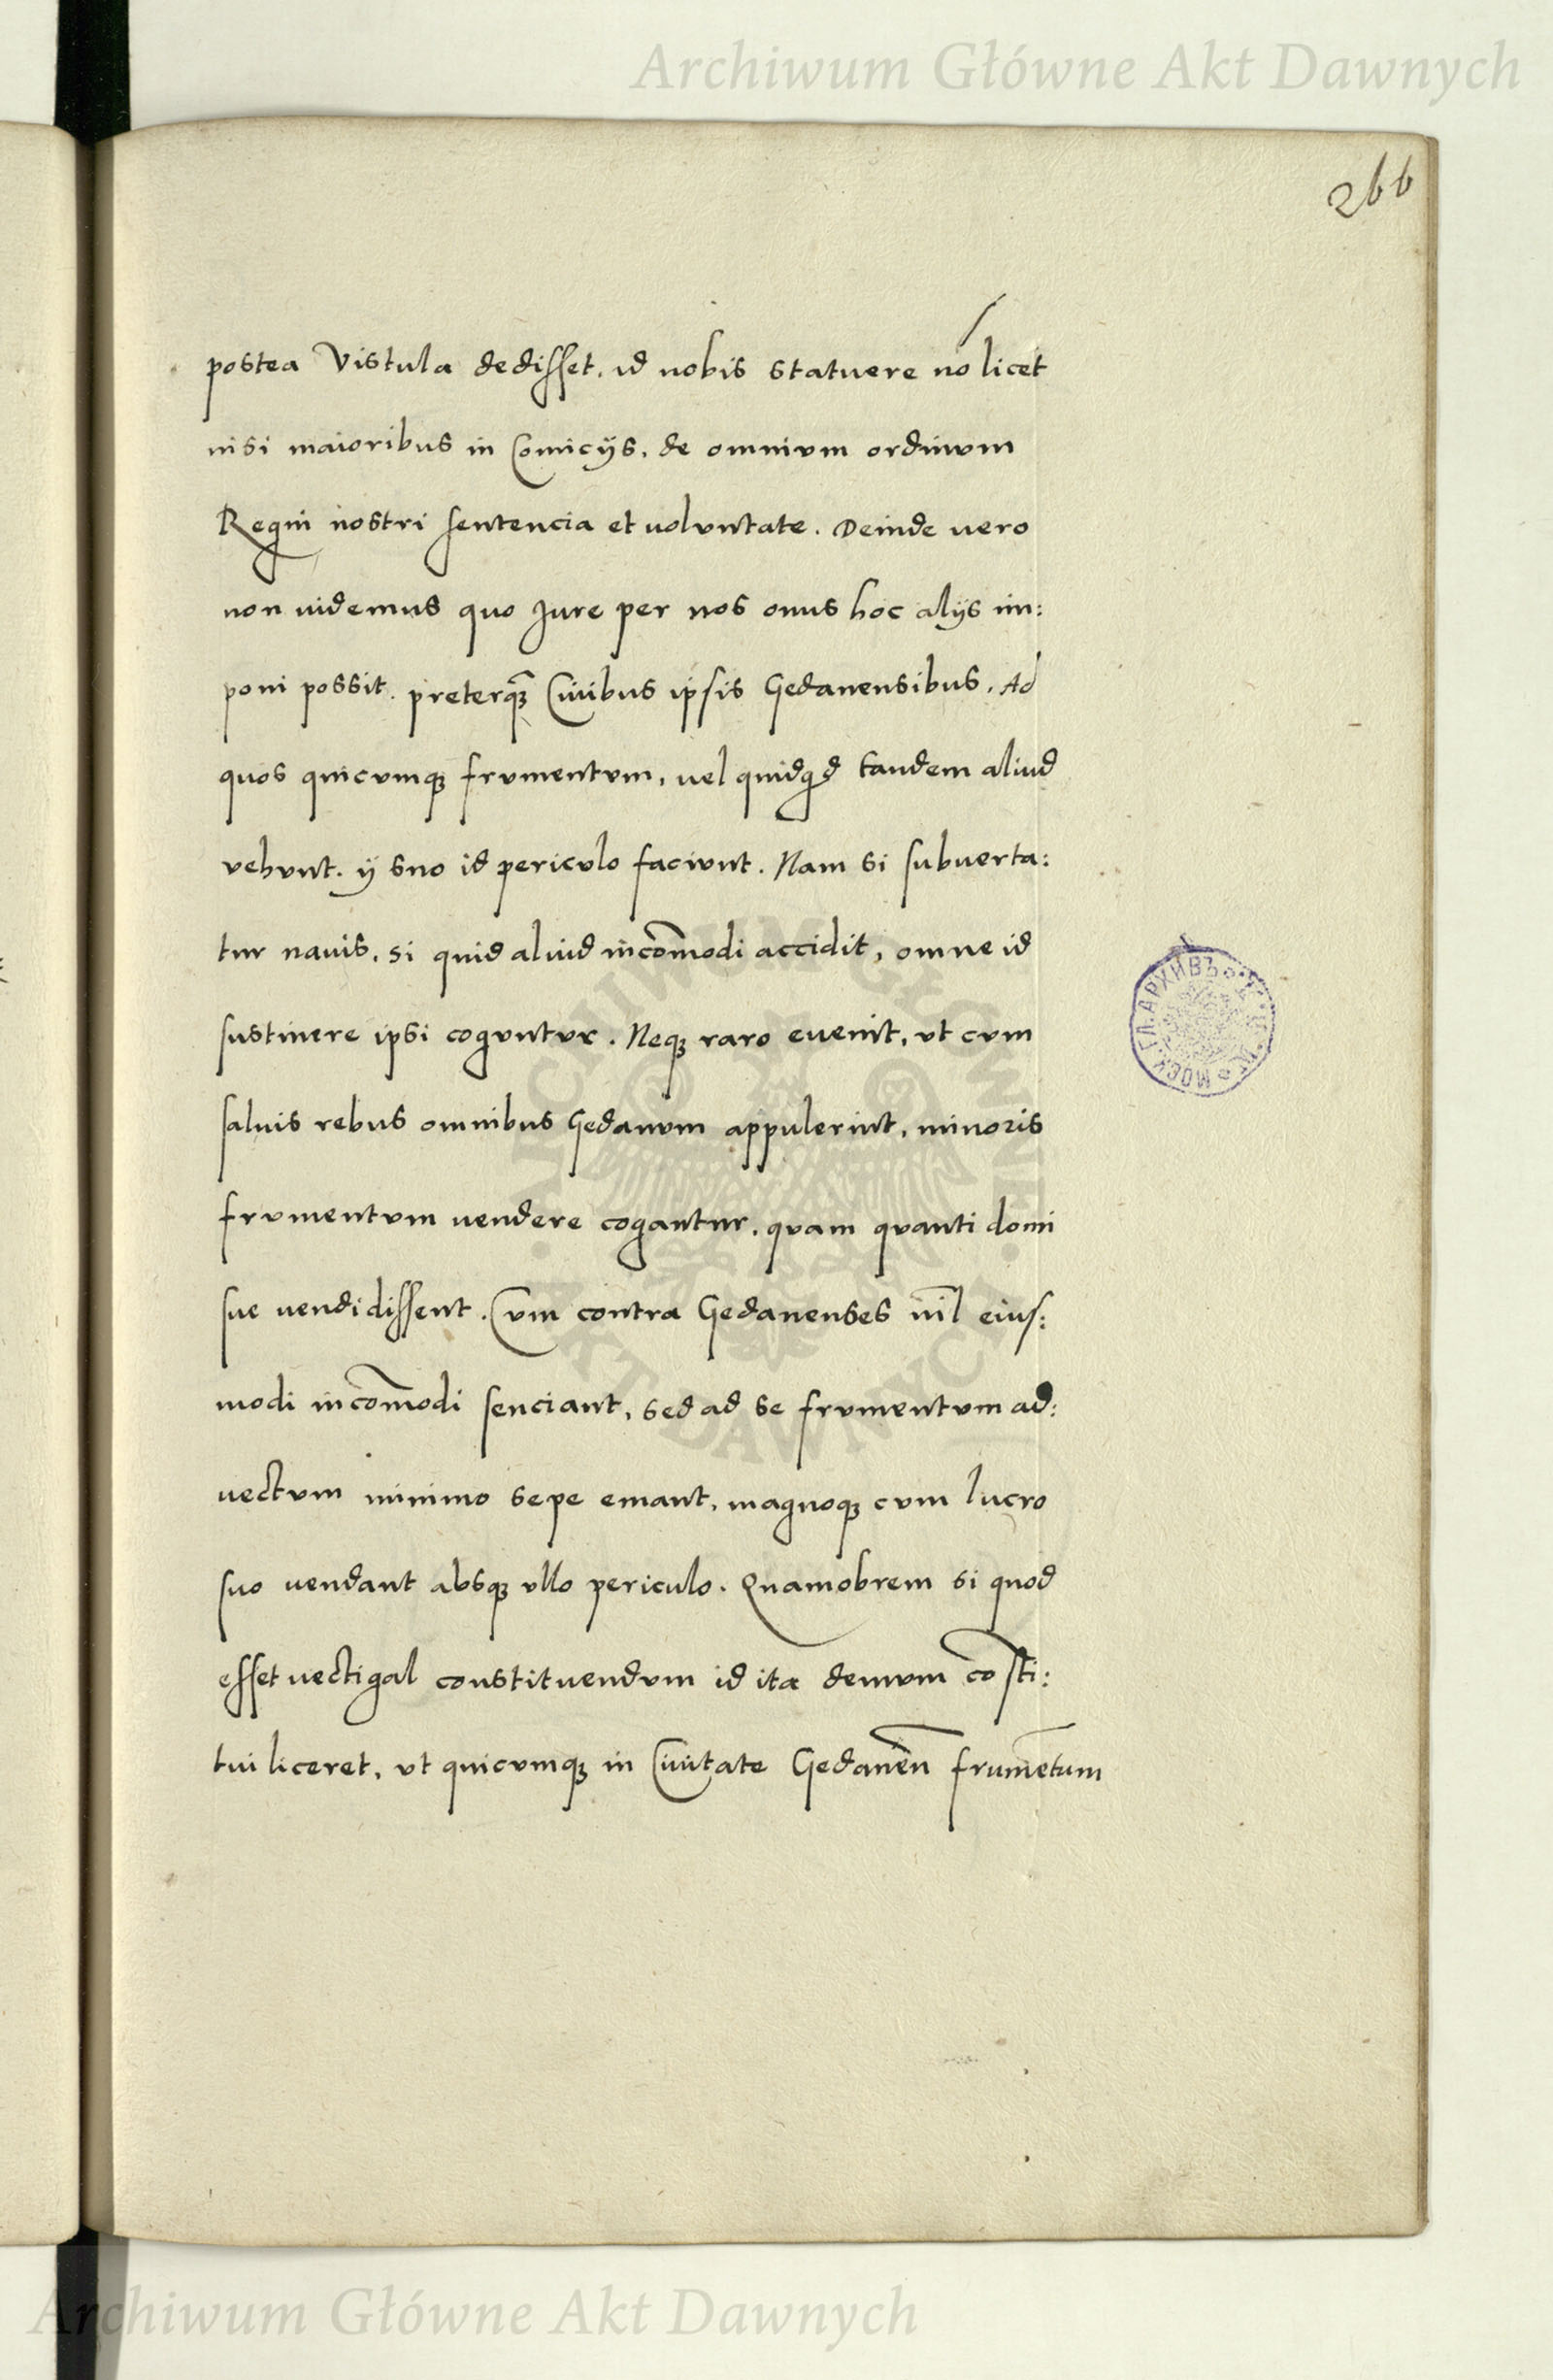 Archiwum Główne Akt Dawnych
266
postea Vistula dedisset. id nobis statuere nō licet
nisi maioribus in Comicijs, de omnium ordinum
Regni nostri sentencia et voluntate. Deinde vero
non videmus quo Jure per nos onus hoc alijs im:
poni possit. preterq̃ Civibus ipsis Gedanensibus. Ad
quos quicumq; frumentum, vel quidq̄d tandem aliud
vehunt. ij suo id periculo faciunt. Nam si subverta:
tur navis, si quid aliud incōmodi accidit, omne id
sustinere ipsi coguntur. Neq; raro evenit, ut cum
salvis rebus omnibus Gedanum appulerint, minoris
frumentum vendere cogantur, quam quanti domi
sue vendidissent. Cum contra Gedanenses nil̄ eius:
modi incōmodi senciant, sed ad se frumentum ad:
vectum minimo sepe emant, magnoq; cum lucro
suo vendant absq; ullo periculo. Quamobrem si quod
esset vectigal constituendum id ita demum cōsti:
tui liceret, ut quicumq; in Civitate Gedanēn frumētum
МОСК. ГЛ. АРХИВЪ
ARCHIWUM GŁÓWNE
AKT DAWNYCH
Archiwum Główne Akt Dawnych